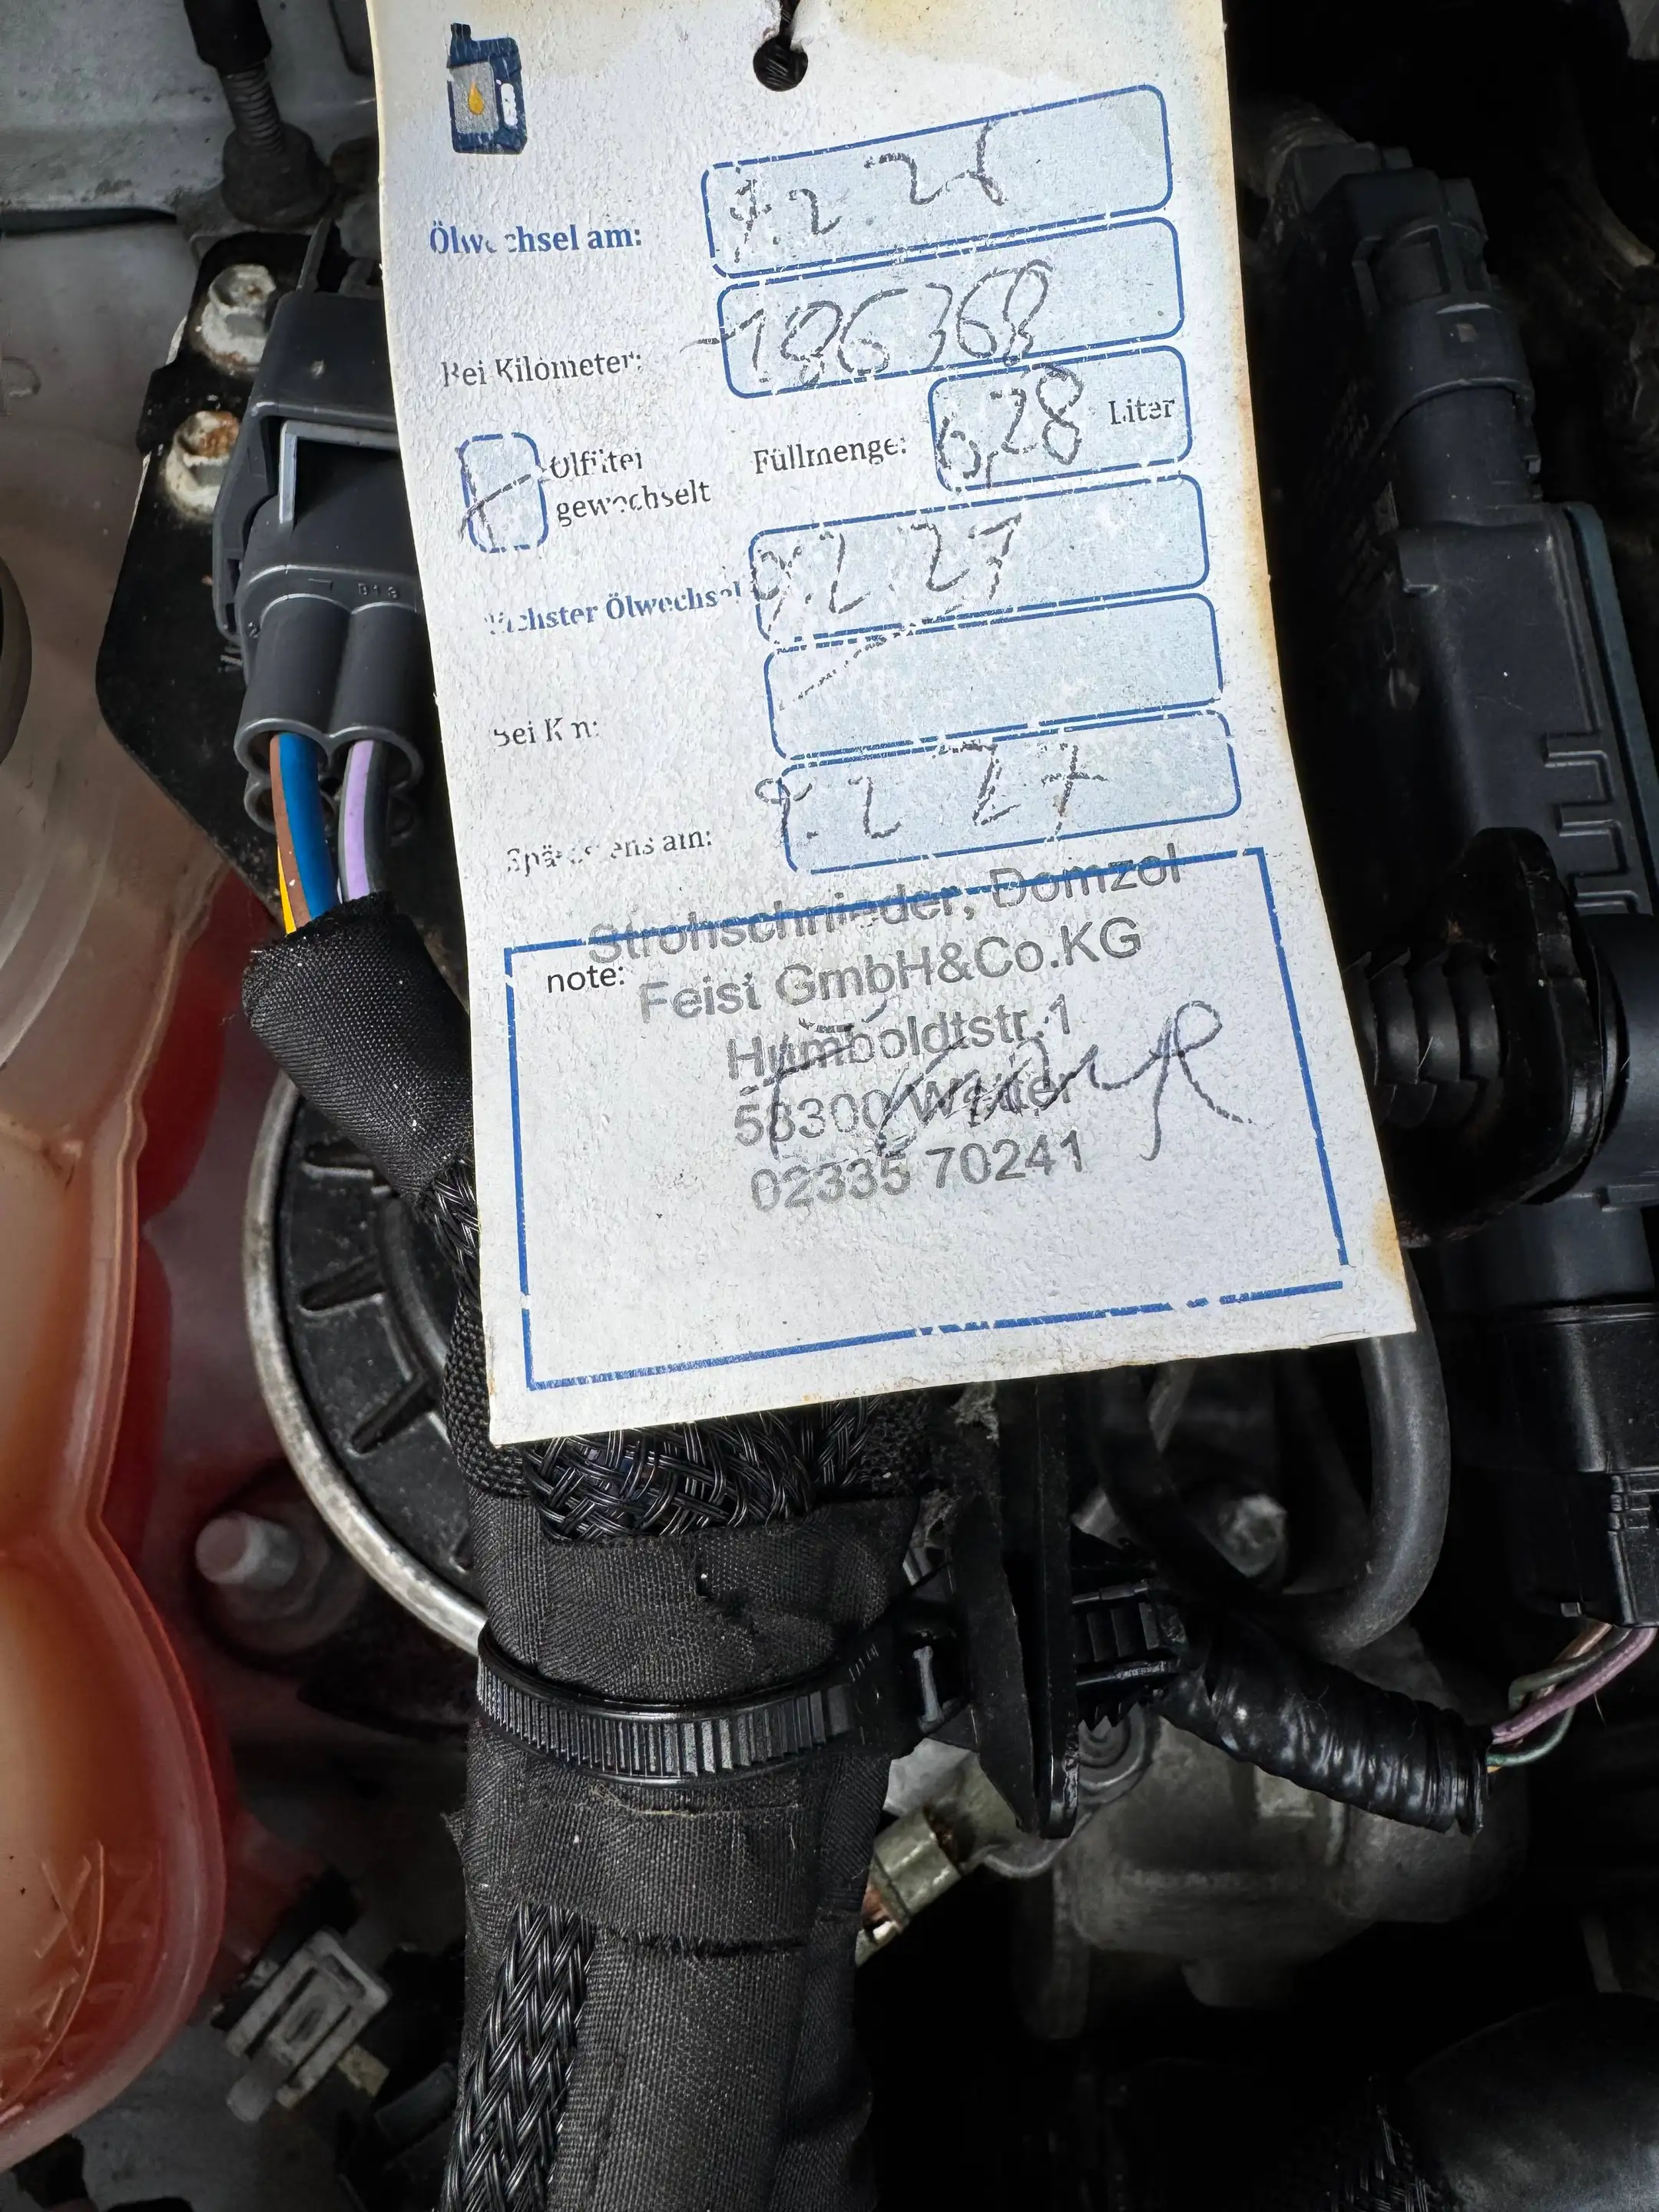 Ölwechsel am: 9.2 26
Bei Kilometer: 186368
Ölfilter gewechselt
Füllmenge: 6,28 Liter
Nächster Ölwechsel 9.2.27
Bei Km:
Spätestens am: 9.2 27
Strohschnieder, Domzol
note: Feist GmbH&Co.KG
Humboldtstr.1
58300 Wetter
02335 70241